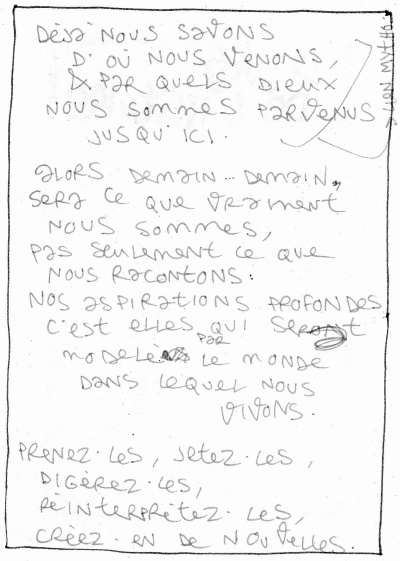 DÉJÀ NOUS SAVONS
D'OÙ NOUS VENONS,
& PAR QUELS DIEUX
NOUS SOMMES PARVENUS
JUSQU'ICI.
ALORS DEMAIN... DEMAIN,
SERA CE QUE VRAIMENT
NOUS SOMMES,
PAS SEULEMENT CE QUE
NOUS RACONTONS:
NOS ASPIRATIONS PROFONDES
C'EST ELLES QUI
PAR
MODELÉ LE MONDE
DANS LEQUEL NOUS
VIVONS.
PRENEZ-LES, JETEZ-LES,
DIGÉREZ-LES,
RÉINTERPRÉTEZ-LES,
CRÉEZ-EN DE NOUVELLES.
LIEN MYTHO.